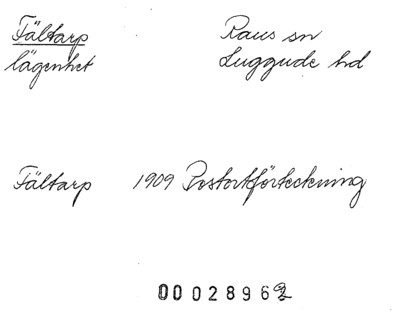 Fältarp Raus sn
lägenhet Luggude hd
Fältarp 1909 Postortförteckning
00028962